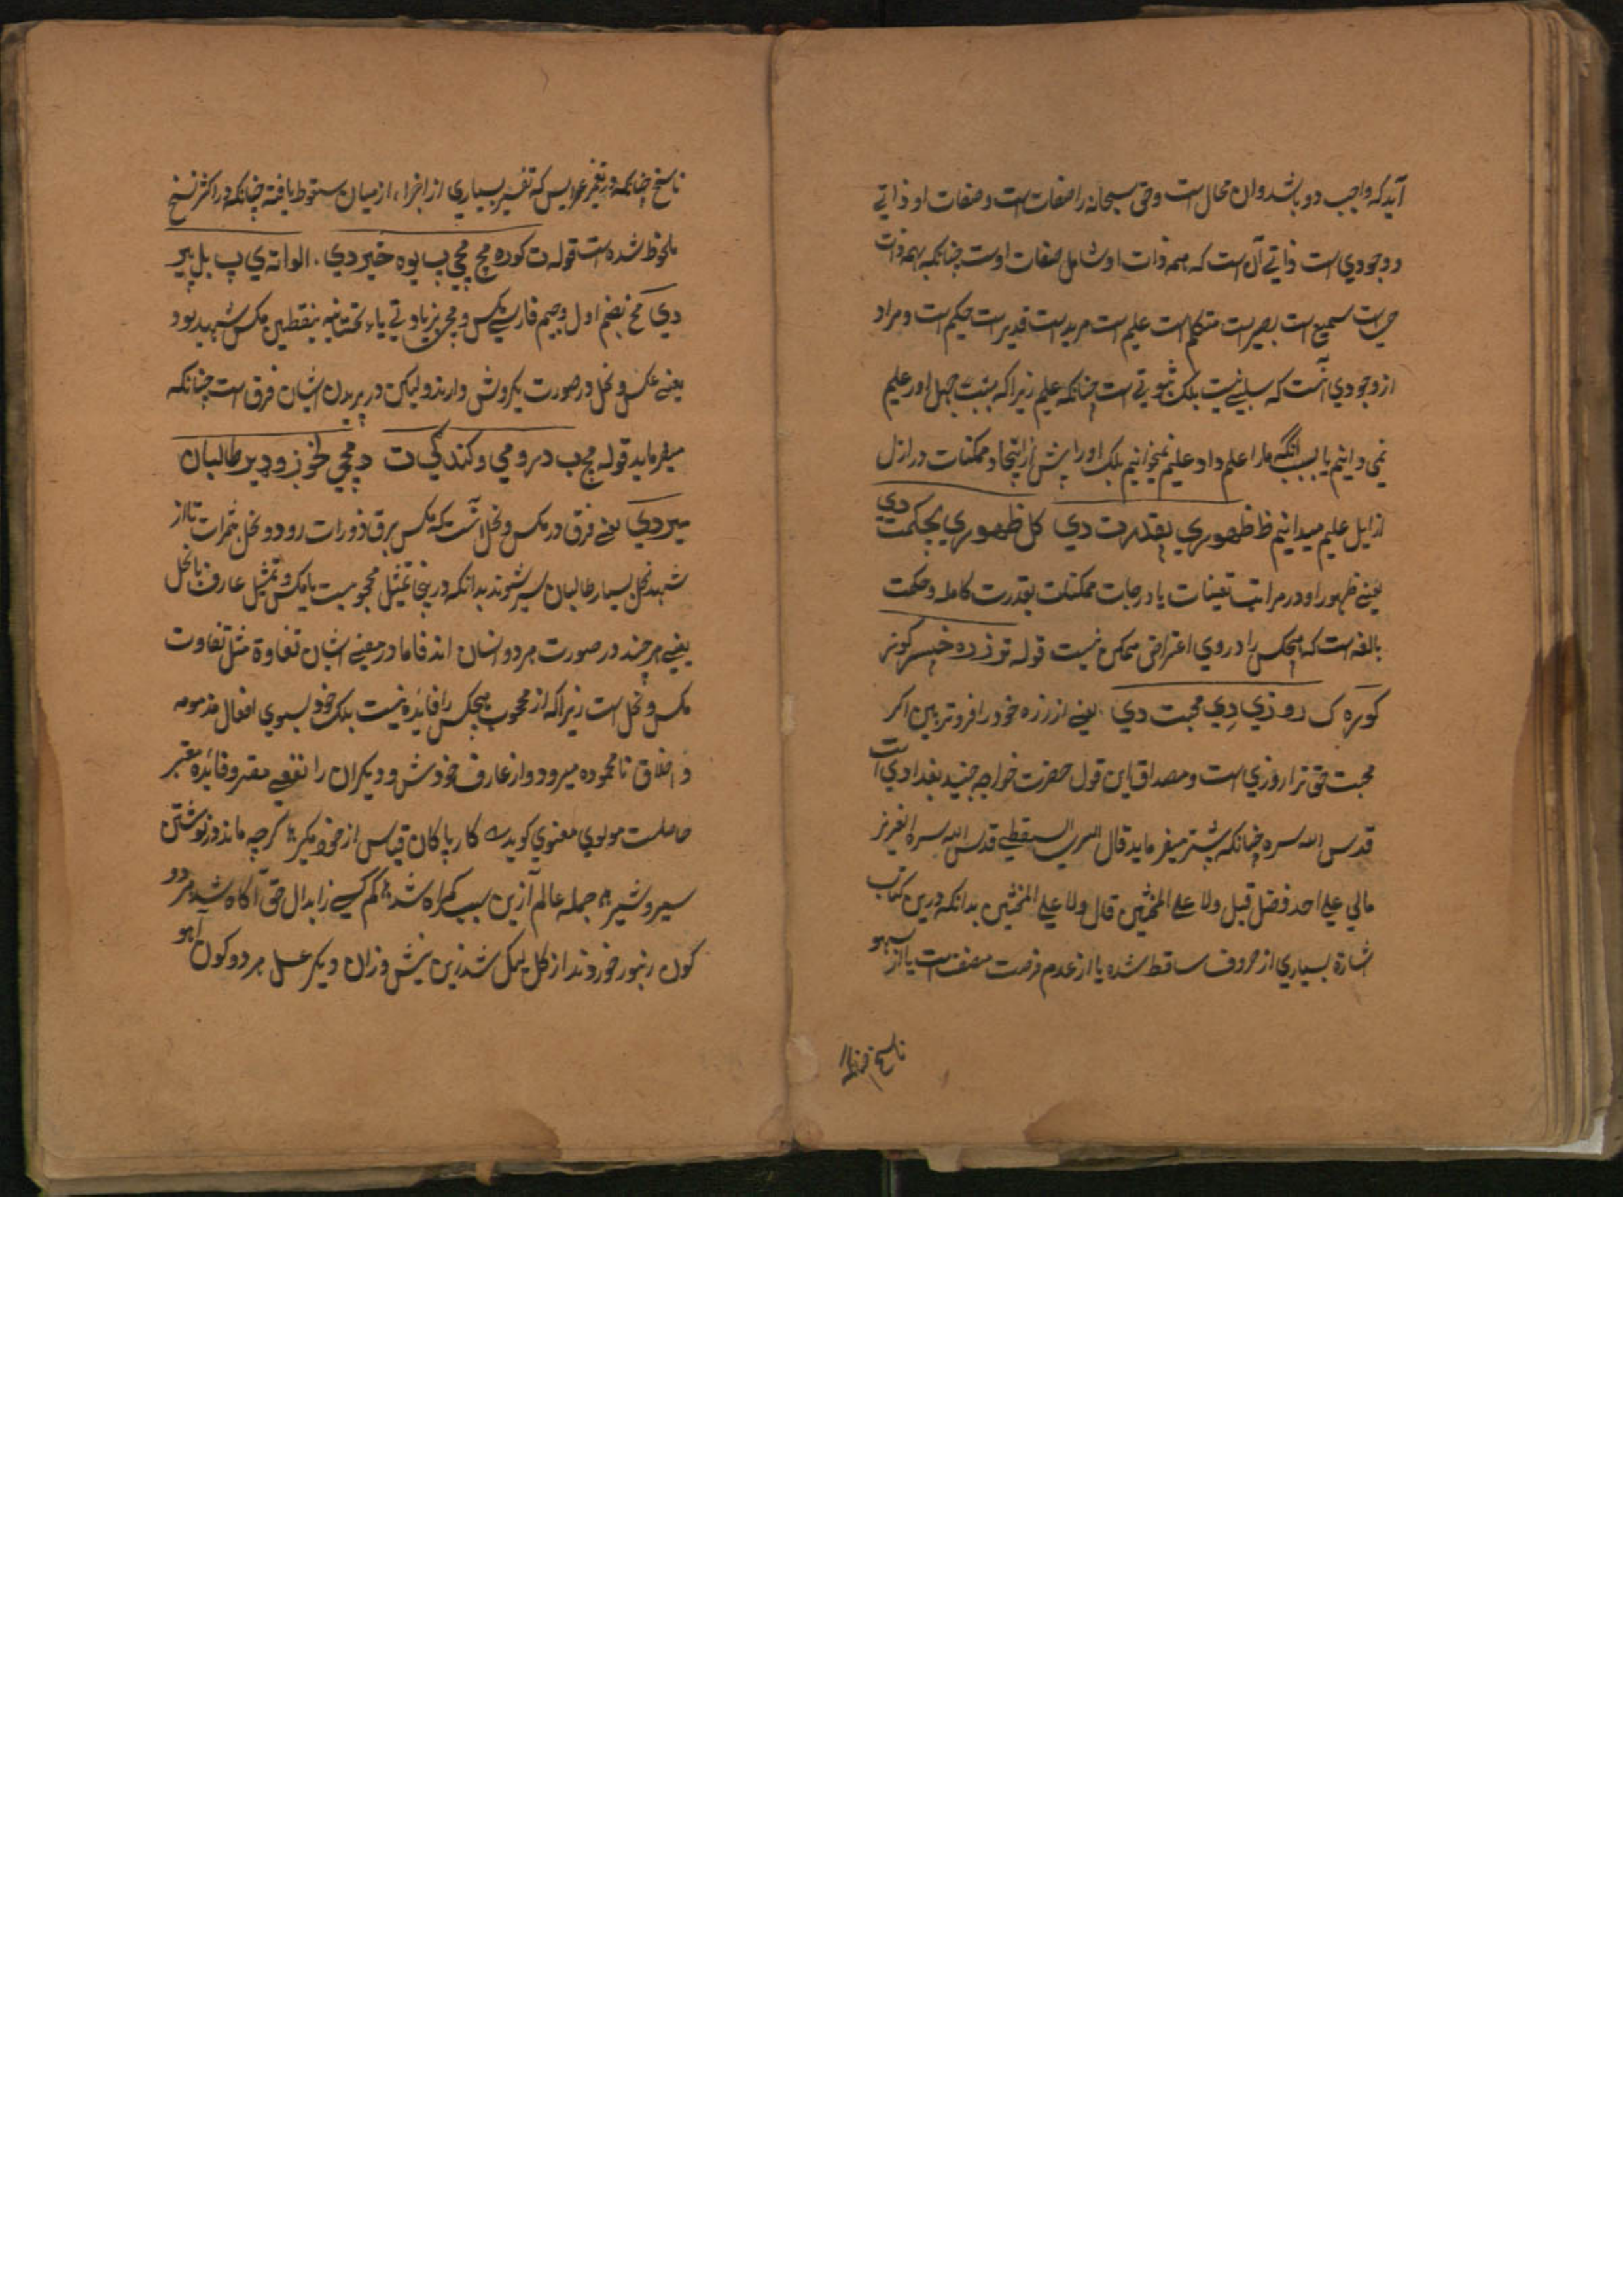 آید که واجب دو باشد و ان محال است و حق سبحانه را صفات است و صفات او ذاتي
و وجودي است ذاتے آن است که همه ذات او شامل صفات اوست چنانکه همه ذات
حي است سمیع است بصیر است متکلم است علیم است مرید است قدیر است حکیم است و مراد
از وجودي آنست که سلبے نیست بلک ثبوتے است چنانکه علیم زیرا که بنسبت جهل اور علیم
نمي دانیم یا بسبب آنکه مارا علم داد علیم نمیخوانیم بلک اورا پیش از ایجاد ممکنات در ازل
ازل علیم میدانیم ظ ظهوري بقدرت دي کل ظهوري بحکمت دي
یعنے ظهور او در مراتب تعینات یا درجات ممکنات بقدرت کامله و حکمت
بالغه است که هیچکس را در وي اعتراض ممکن نیست قوله تو زره خیسر کونر
کوره ک روزي دِي محبت دي یعنے از زره خود را فروتر بین اکر
محبت حق ترا روزي است و مصداق این قول حضرت خواجه جنید بغدادي است
قدس الله سره چنانکه پیشتر میفرماید قال السري السقطے قدس الله سره العزیز
مالي علے احد فضل قیل ولا علے المخنثین قال ولا علے المخنثین بدانکه درین کتاب
اشارة بسیاري از حروف ساقط شده یا از عدم فرصت مصنف است یا از سهو
ناسخ چنانکه
ناسخ چنانکه در تفسیر عرایس که تفسیر بسیاري از اجزاء از میان سقوط یافته چنانکه در اکثر نسخ
ملحوظ شده است قوله ت کوره مچ مچي ب یوه خیر دي . الواته ي پ بل بیر
دي مچ بضم اول و جیم فارسے مکس و مچي بزیادتے یاء تحتانیه بنقطین مکس شهید بود
یعنے مکس و نحل در صورت یکروش دارند و لیکن در پریدن ایشان فرق است چنانکه
میفرماید قوله مچ ب درومي و کندکي ت د مچي لخوز و دیر طالبان
میر دي یعنے فرق در مکس و نحل آنست که مکس بر قاذورات رود و نحل بثمرات تا از
شهد نحل بسیار طالبان سیر شوند بدانکه درینجا تمثیل محجوبست با مکس و تمثیل عارف با نحل
یعنے هر چند در صورت هر دو انسان اند فاما در معنے ایشان تفاوة مثل تفاوت
مکس و نحل است زیرا که از محجوب هیچکس را فایده نیست بلک خود بسوي افعال مذمومه
و اخلاق نا محموده میرود و از عارف خودش و دیکران را نفعے مقرر و فائده معتبر
حاصلست مولوي معنوي کوید کار پاکان قیاس از خود مکیر کرچه ماند در نوشتن
سیر و شیر جمله عالم ازین سبب کمراه شد کم کسے ز ابدال حق آکاه شد هر دو
کون زنبور خوردند از کل لیک شد زین نیش و زان دیکر عسل هر دو کون آهو